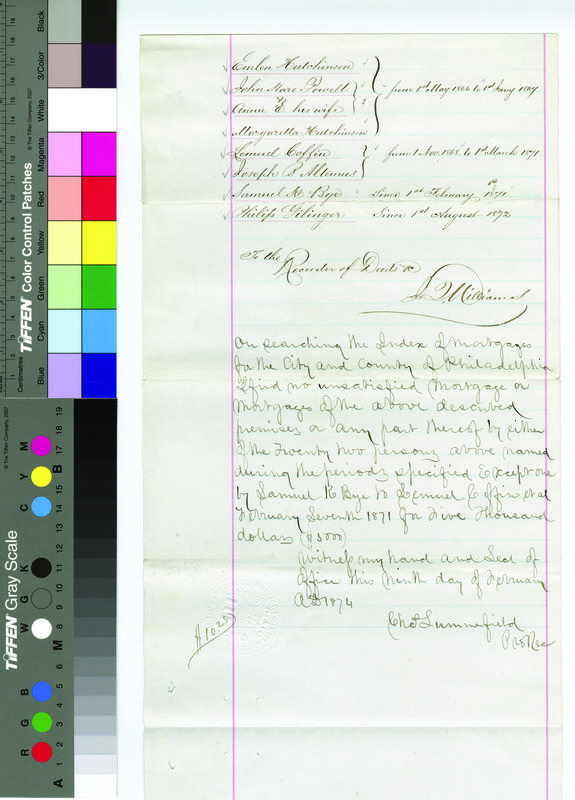 Emlen Hutchinson
John Hare Powell
Annie E. his wife
from 1st May 1866 to 1st Jany 1869
Margaretta Hutchinson
Lemuel Coffin
Joseph B Altemus
from 1 Nov. 1868 to 1st March 1871
Samuel K. Bye Since 1st February 1871
Philip Filinger Since 1st August 1872
To the
Recorder of Deeds &c
Williams
On searching the Index of Mortgages
for the City and County of Philadelphia
I find no unsatisfied Mortgage or
Mortgages of the above described
premises or any part thereof by either
of the Twenty two persons above named
during the periods specified Except one
by Samuel K Bye to Lemuel Coffin et al
February Seventh 1871 for Five Thousand
dollars ($5000)
Witness my hand and Seal of
Office this Ninth day of February
AD 1874
Chas Summefield
Pro Rec
$10.25
Black
3/Color
White
Magenta
Red
Yellow
Green
Cyan
Blue
TIFFEN Color Control Patches
© The Tiffen Company, 2007
Centimetres
TIFFEN Gray Scale
© The Tiffen Company, 2007
R G B
W G K
C Y M
A 1 2 3 4 5 6 M 8 9 10 11 12 13 14 15 B 17 18 19